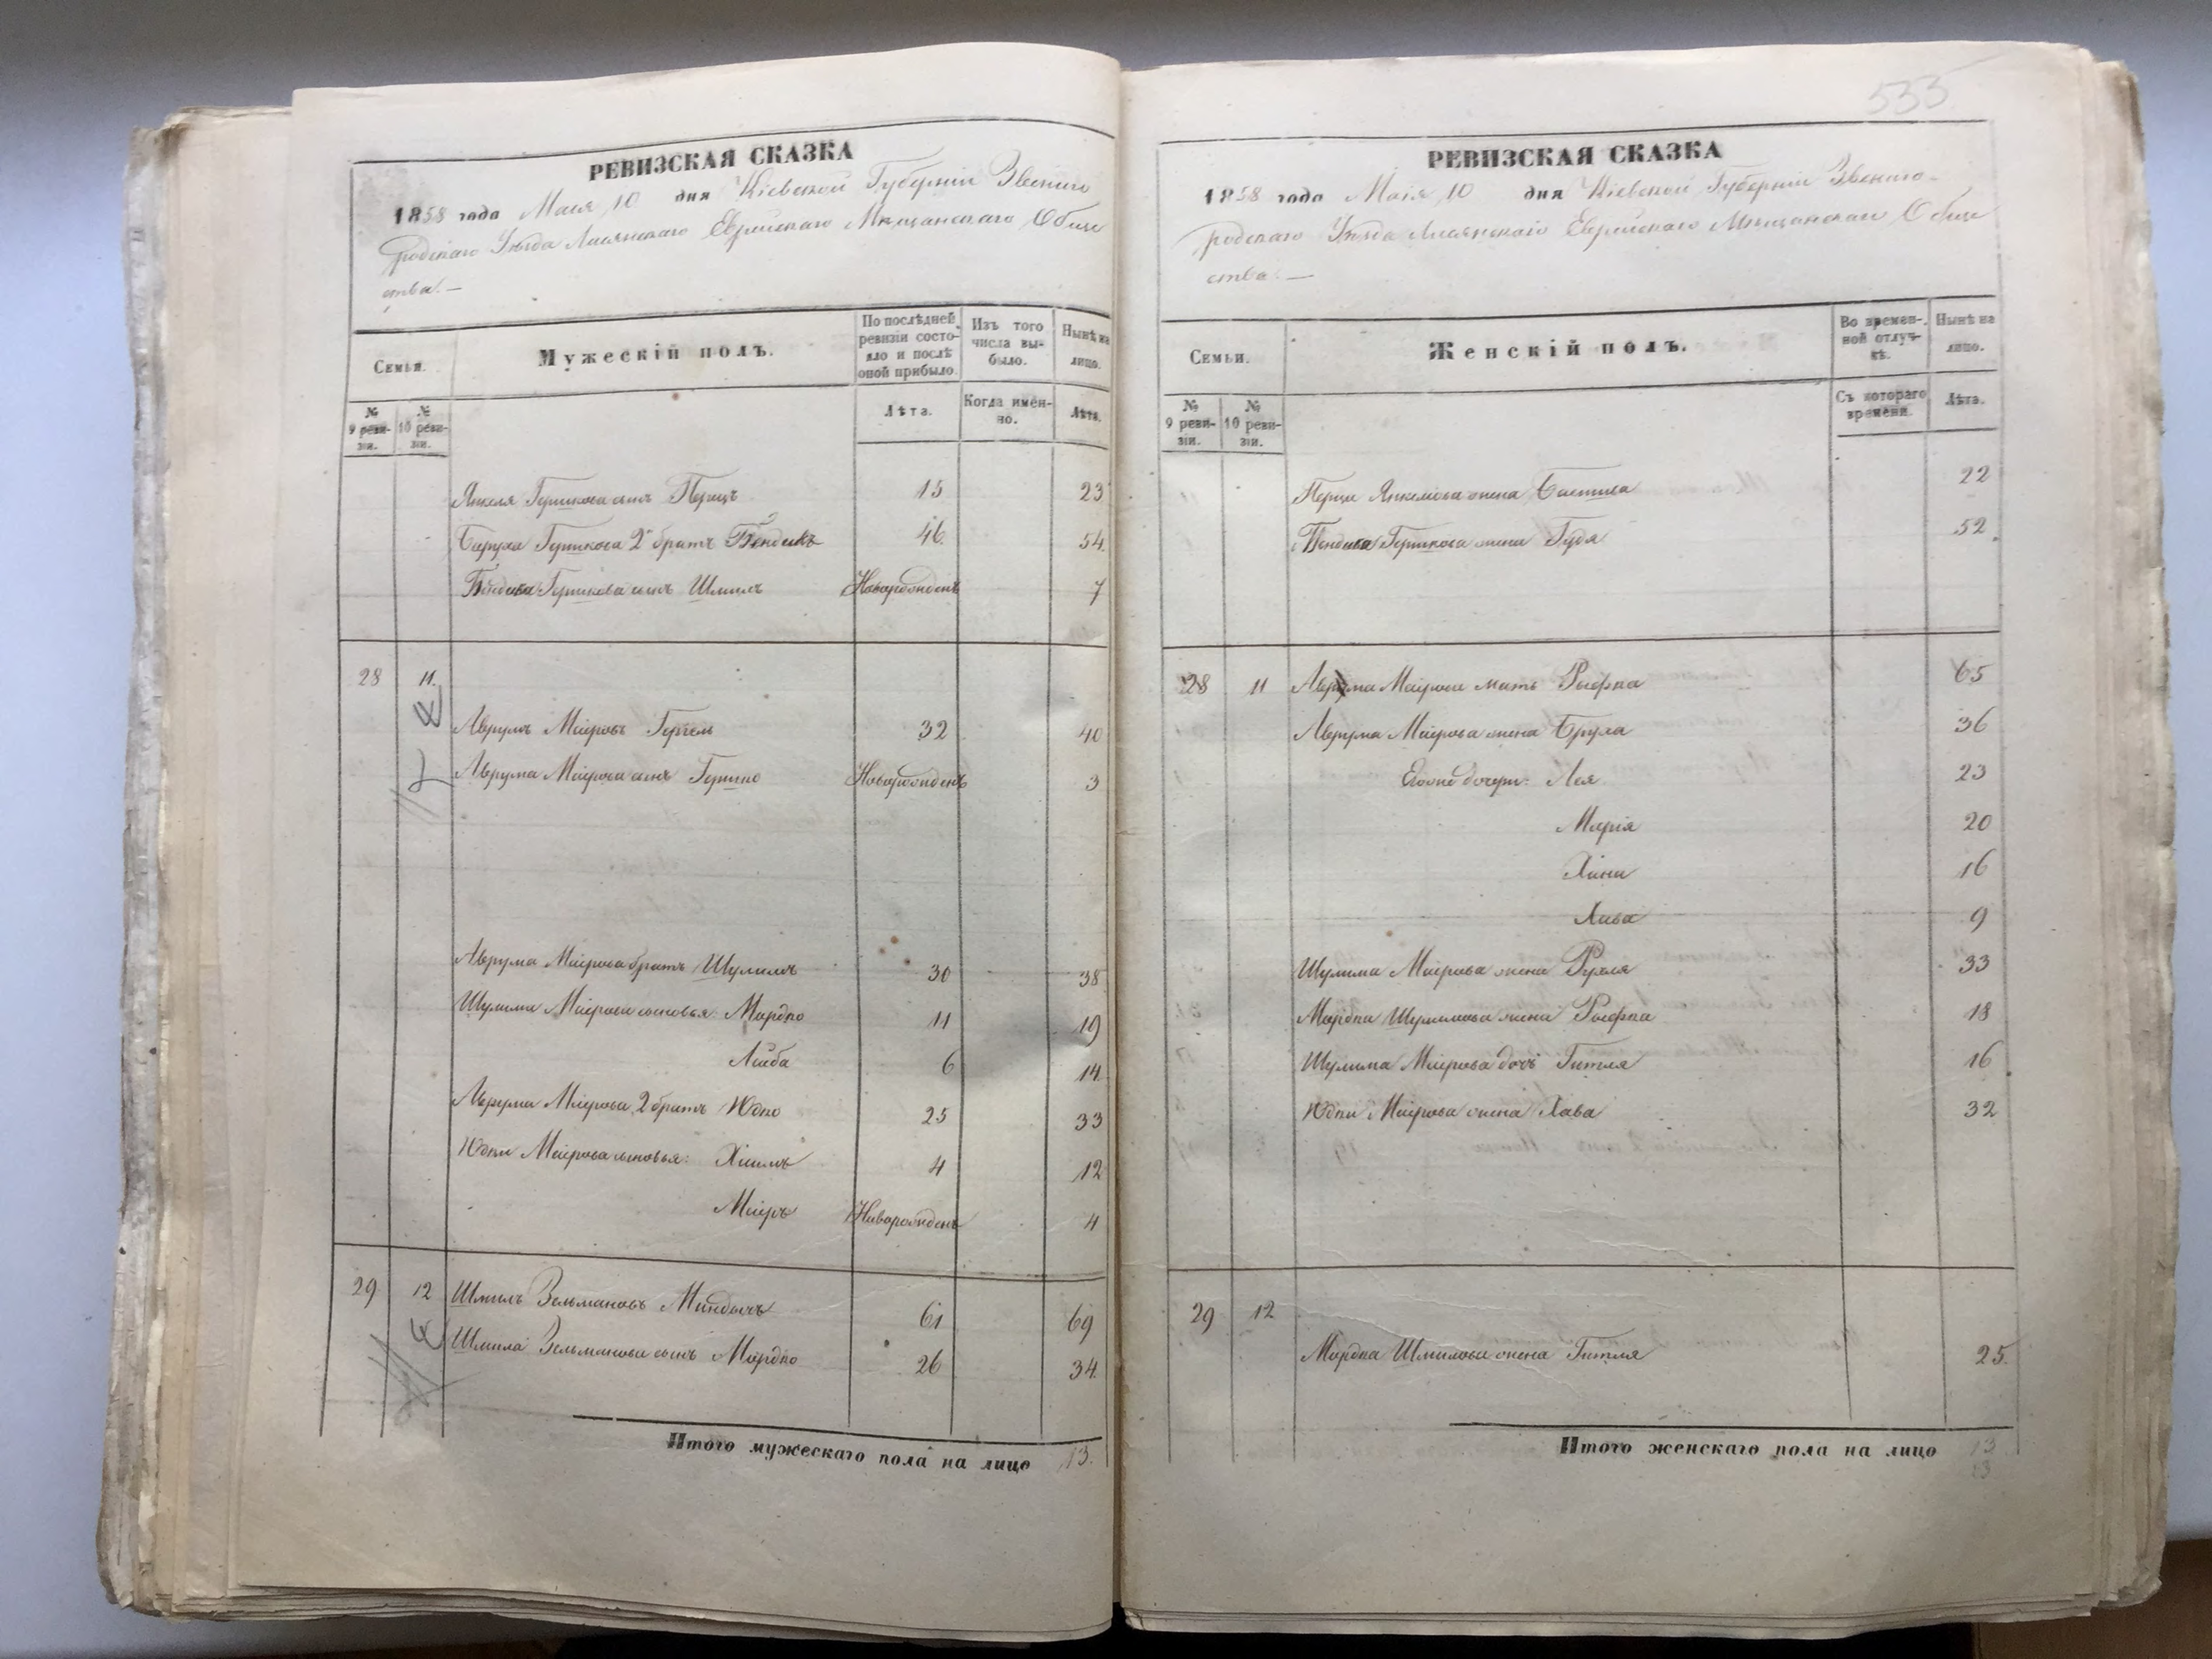 533
РЕВИЗСКАЯ СКАЗКА
1858 года Маія 10 дня Кіевской Губерніи Звениго
родскаго Уѣзда Лисянскаго Еврейскаго Мѣщанскаго Обще
ства. —
Семья.
Мужескій полъ.
По послѣдней ревизіи состо-яло и послѣ оной прибыло.
Изъ того числа вы-было.
Нынѣ на лицо.
№ 9 реви-зіи.
№ 10 реви-зіи.
Лѣта.
Когда имен-но.
Лѣта.
Янкеля Гершкова сынъ Перецъ 15 23
Баруха Гершкова 2й братъ Бендикъ 46 54
Гершкова сынъ Шмиль Новорожденъ 7
28 11.
Аврумъ Маіровъ Гергель 32 40
Аврума Маірова сынъ Гершко Новорожденъ 3
Аврума Маірова братъ Шулимъ 30 38
Шулима Маірова сыновья: Мордко 11 19
Лейба 6 14
Аврума Маірова 2 братъ Юдко 25 33
Юдки Маірова сыновья: Хаимъ 4 12
Маіръ Новорожденъ 4
29 12 Шмиль Зельмановъ 61 69
Шмиля Зельманова сынъ Мордко 26 34
Итого мужескаго пола на лицо 13.
РЕВИЗСКАЯ СКАЗКА
1858 года Маія 10 дня Кіевской Губерніи Звениго-
родскаго Уѣзда Лисянскаго Еврейскаго Мѣщанскаго Обще
ства. —
Семьи.
Женскій полъ.
Во времен-ной отлуч-кѣ.
Нынѣ на лицо.
№ 9 реви-зіи.
№ 10 реви-зіи.
Съ котораго времени.
Лѣта.
Перца Янкелева жена 22
Гершкова жена Гудя 52
28 11 Аврума Маірова мать Рыфка 65
Аврума Маірова жена Бруха 36
дочери: Лея 23
Марія 20
Хана 16
Хава 9
Шулима Маірова жена Рухля 33
Мордка Шулимова жена Рыфка 18
Шулима Маірова дочь Гитля 16
Юдки Маірова жена Хава 32
29 12
Мордка Шмилова жена Гитля 25.
Итого женскаго пола на лицо 13
13